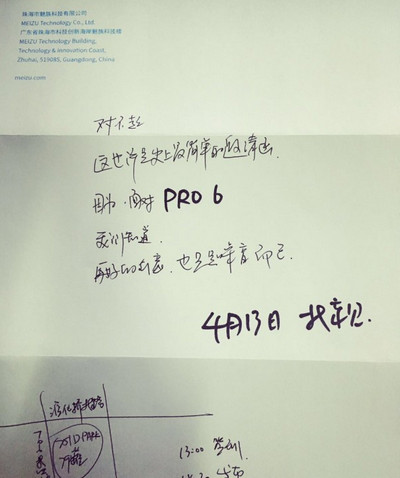 珠海市魅族科技有限公司
MEIZU Technology Co., Ltd.
广东省珠海市科技创新海岸魅族科技楼
MEIZU Technology Building,
Technology & Innovation Coast,
Zhuhai, 519085, Guangdong, China
meizu.com
对不起
这也许是史上最简单的邀请函.
因为.面对 PRO 6
我们知道.
再好的创意.也只是噪音而已.
4月13日 北京见.
13:00 签到